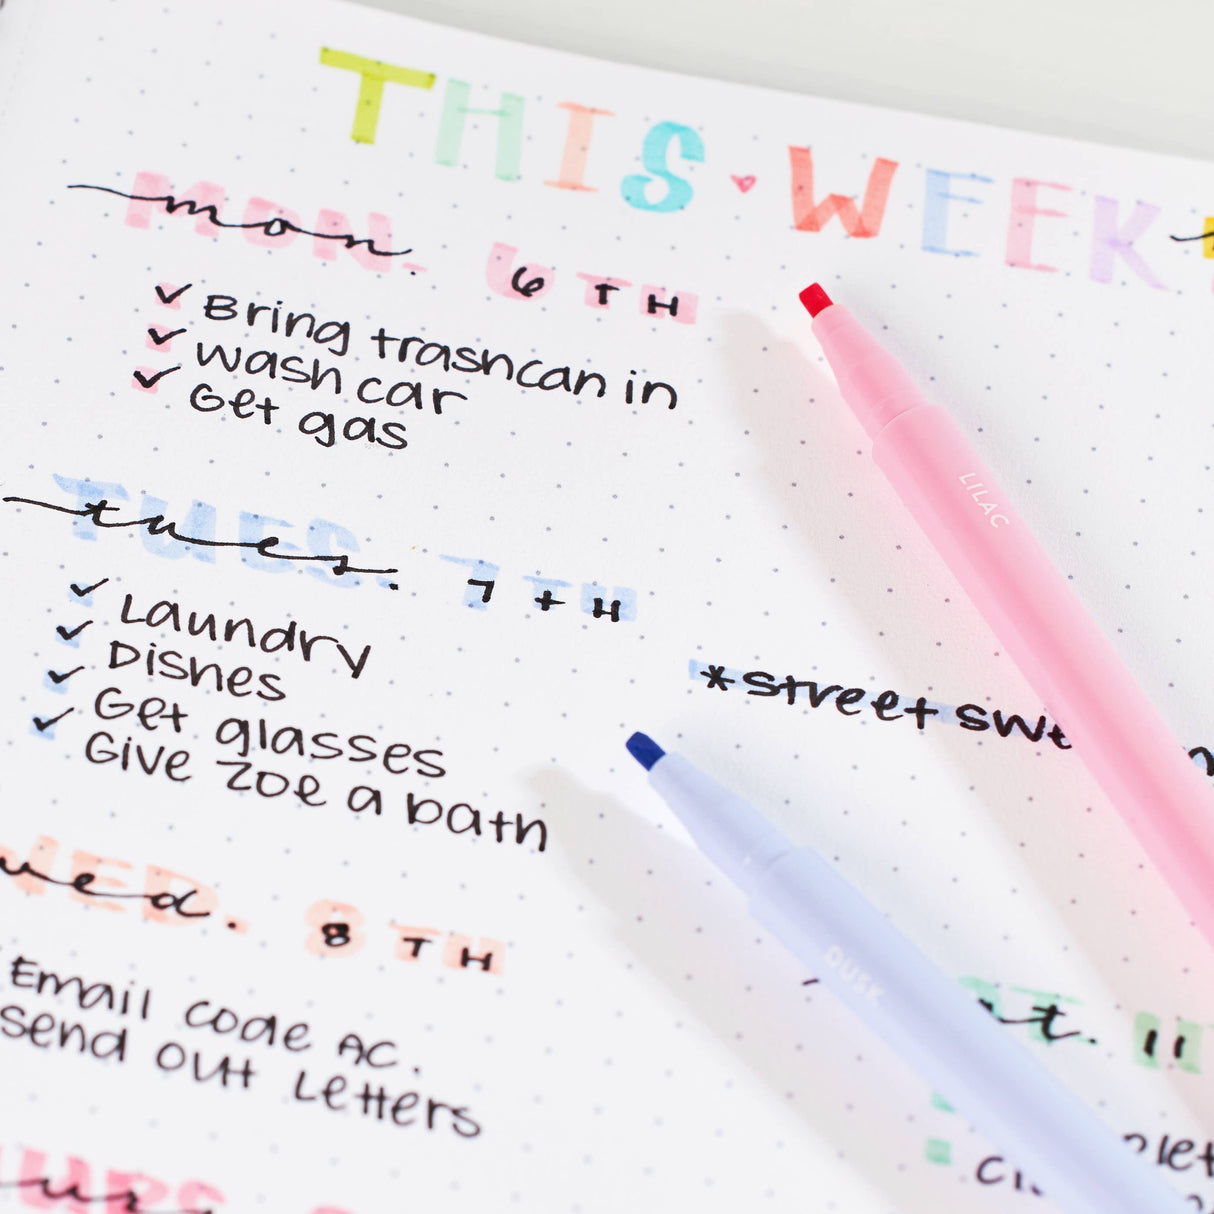 THIS WEEK
mon. 6TH
Bring trashcan in
wash car
Get gas
tues. 7TH
Laundry
Dishes
Get glasses
Give Zoe a bath
wed. 8TH
Email code AC.
send out Letters
*street
LILAC
DUSK
11